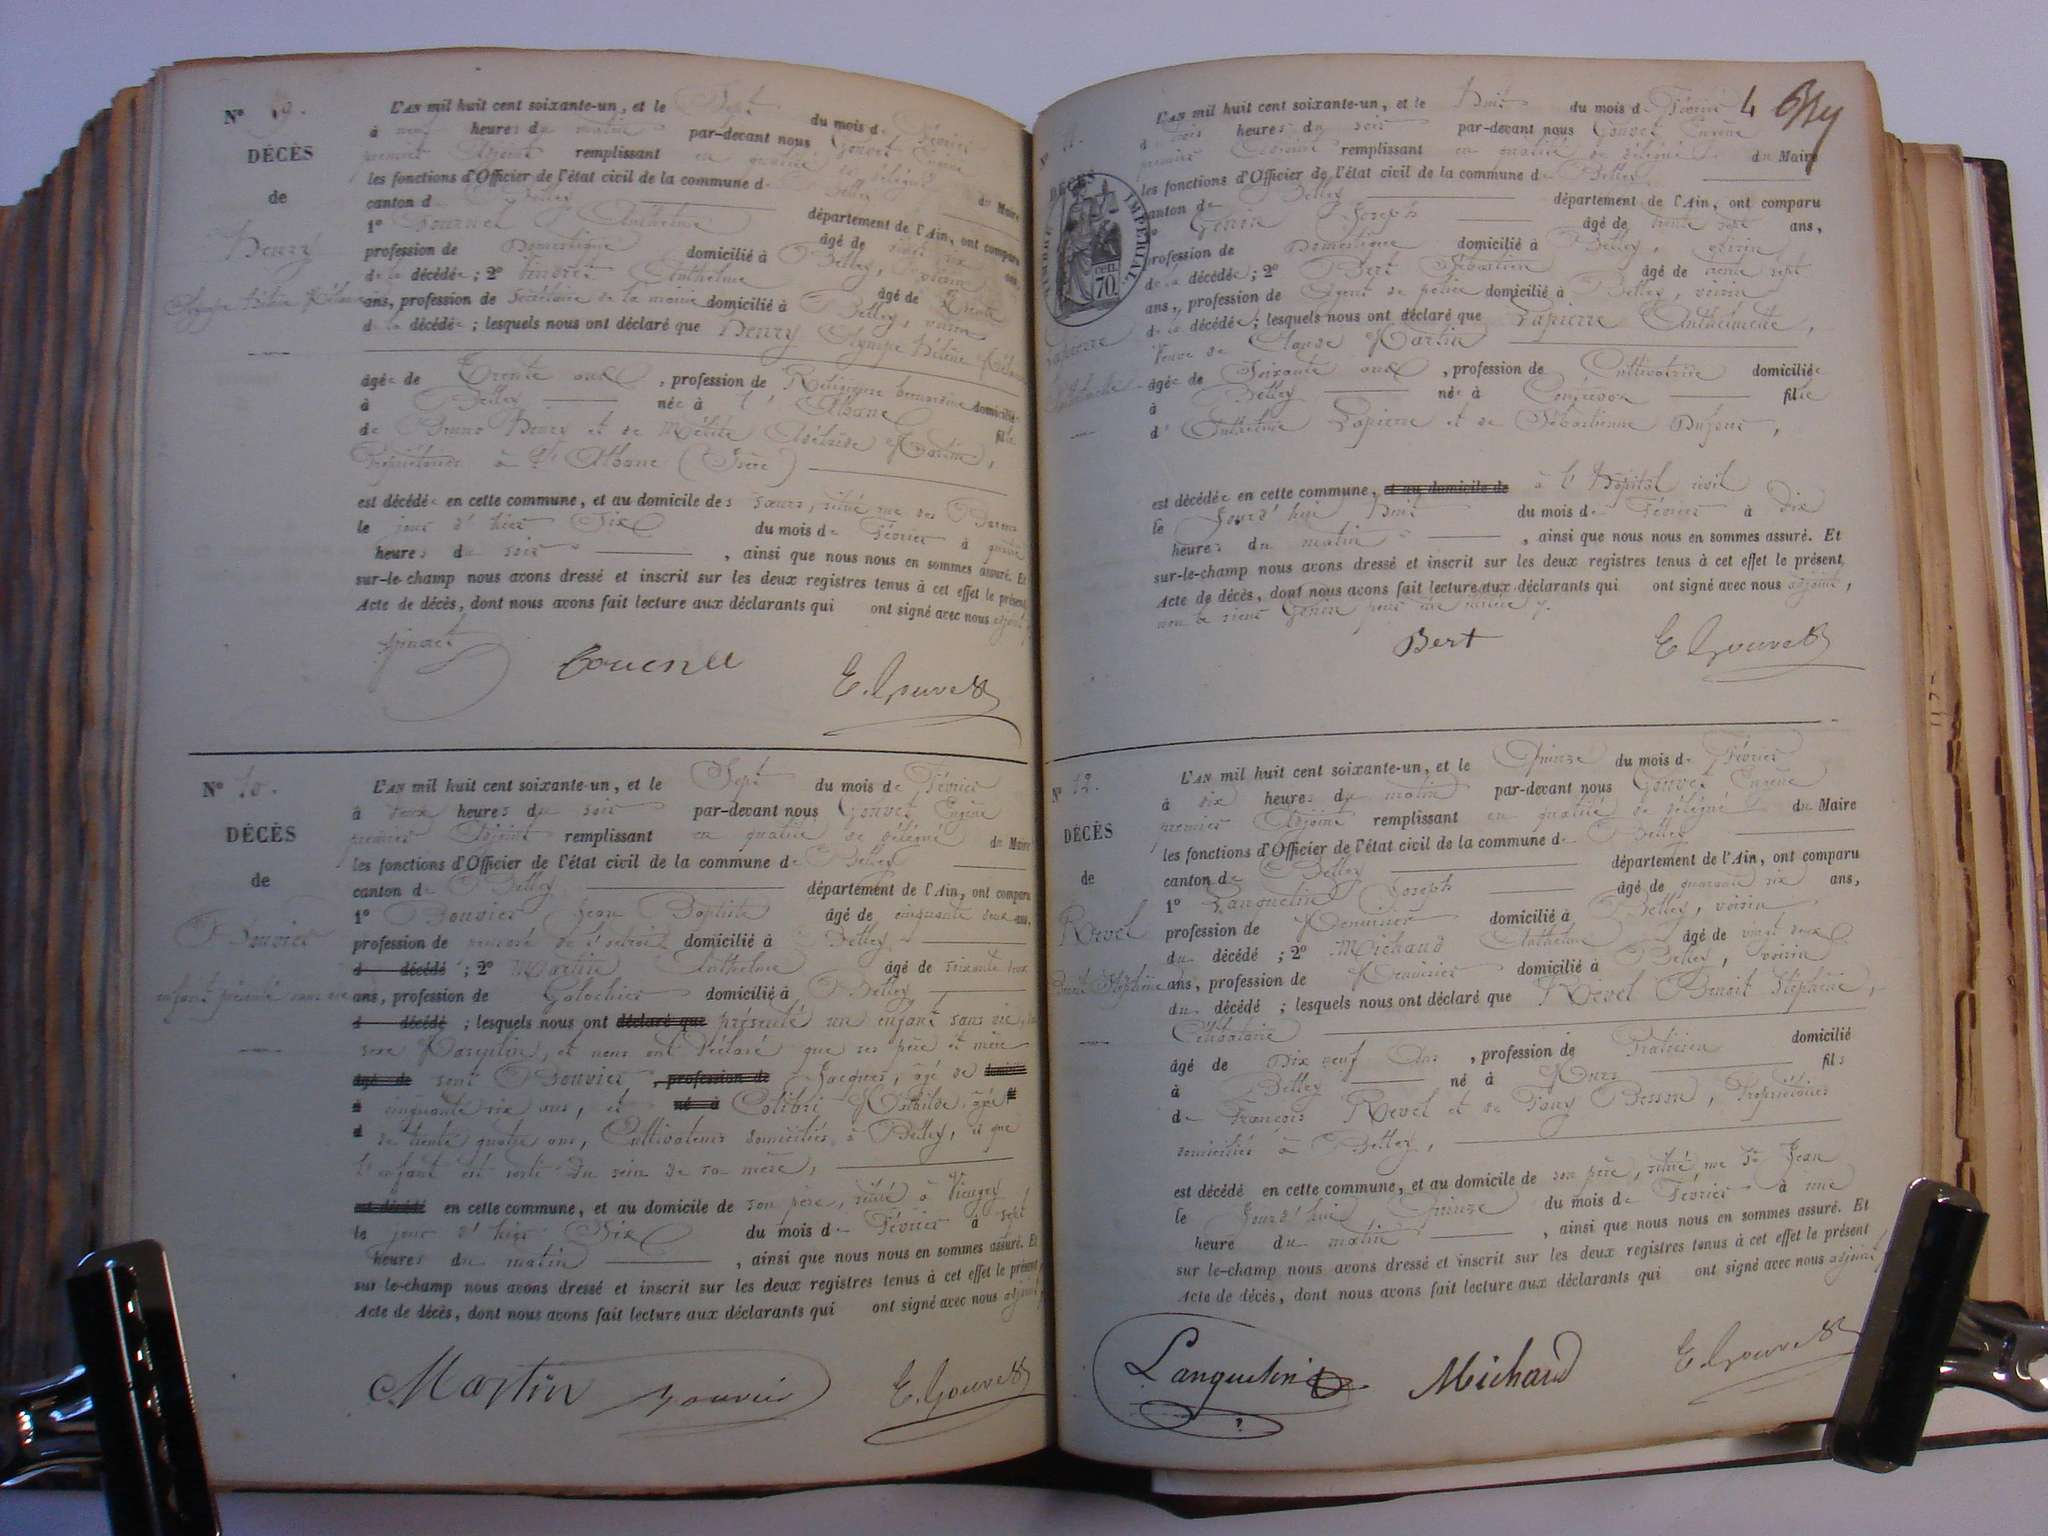 N° 9.
DÉCÈS
de
Henry
Olympe Hélène Mélanie
L'AN mil huit cent soixante-un, et le Sept du mois de Février
à neuf heures du matin par-devant nous Gouvet Eugène
premier Adjoint remplissant en qualité de délégué du Maire
les fonctions d'Officier de l'état civil de la commune de Belley
canton de Belley département de l'Ain, ont comparu
1° Anthelme âgé de ans,
profession de Domestique domicilié à Belley, voisin
de la décédée; 2° Anthelme âgé de trente
ans, profession de Secrétaire de la mairie domicilié à Belley, voisin
de la décédée; lesquels nous ont déclaré que Henry Olympe Hélène Mélanie
âgée de Trente ans, profession de Religieuse bernardine domiciliée
à Belley née à St Albane fille
de Bruno Henry et de Adélaïde
Propriétaires à St Albane (Isère)
est décédée en cette commune, et au domicile des sœurs, situé rue des
le jour d'hier Six du mois de Février à quatre
heures du soir, ainsi que nous nous en sommes assuré. Et
sur-le-champ nous avons dressé et inscrit sur les deux registres tenus à cet effet le présent
Acte de décès, dont nous avons fait lecture aux déclarants qui ont signé avec nous adjoint
E. Gouvet
N° 10.
DÉCÈS
de
Bouvier
enfant présenté sans vie
L'AN mil huit cent soixante-un, et le Sept du mois de Février
à deux heures du soir par-devant nous Gouvet Eugène
premier Adjoint remplissant en qualité de délégué du Maire
les fonctions d'Officier de l'état civil de la commune de Belley
canton de Belley département de l'Ain, ont comparu
1° Bouvier Jean Baptiste âgé de cinquante deux ans,
profession de préposé de l'octroi domicilié à Belley
d décédé; 2° Martin Anthelme âgé de soixante deux
ans, profession de Galochier domicilié à Belley
d décédé; lesquels nous ont déclaré que présenté un enfant sans vie, du
sexe Masculin, et nous ont déclaré que ses père et mère
âgé de sont Bouvier, profession de Jacques, âgé de domicilié
à cinquante six ans, et né à Colibri Mathilde âgée
d de trente quatre ans, Cultivateurs domiciliés à Belley, et que
l'enfant est sorti du sein de sa mère,
est décédé en cette commune, et au domicile de son père, situé à
le jour d'hier Six du mois de Février à sept
heures du matin, ainsi que nous nous en sommes assuré. Et
sur-le-champ nous avons dressé et inscrit sur les deux registres tenus à cet effet le présent
Acte de décès, dont nous avons fait lecture aux déclarants qui ont signé avec nous adjoint
Martin Bouvier E. Gouvet
4
N° 11.
DÉCÈS
TIMBRE IMPÉRIAL
70 cen.
Lapierre
Anthelmette
L'AN mil huit cent soixante-un, et le Huit du mois de Février
à trois heures du soir par-devant nous Gouvet Eugène
premier Adjoint remplissant en qualité de délégué du Maire
les fonctions d'Officier de l'état civil de la commune de Belley
canton de Belley département de l'Ain, ont comparu
1° Genin Joseph âgé de trente sept ans,
profession de Domestique domicilié à Belley, voisin
de la décédée; 2° Bert Sébastien âgé de trente sept
ans, profession de Agent de police domicilié à Belley, voisin
de la décédée; lesquels nous ont déclaré que Lapierre Anthelmette,
Veuve de Claude Martin
âgée de Soixante ans, profession de Cultivatrice domiciliée
à Belley née à Contrevoz fille
d'Anthelme Lapierre et de Sébastienne Dufour,
est décédée en cette commune, et au domicile de à l'Hôpital civil
le Jourd'hui huit du mois de Février à Dix
heures du matin, ainsi que nous nous en sommes assuré. Et
sur-le-champ nous avons dressé et inscrit sur les deux registres tenus à cet effet le présent
Acte de décès, dont nous avons fait lecture aux déclarants qui ont signé avec nous adjoint,
non le sieur Genin pour
Bert E. Gouvet
N° 12.
DÉCÈS
de
Revel
Benoit Stéphène
L'AN mil huit cent soixante-un, et le Quinze du mois de Février
à dix heures du matin par-devant nous Gouvet Eugène
premier Adjoint remplissant en qualité de délégué du Maire
les fonctions d'Officier de l'état civil de la commune de Belley
canton de Belley département de l'Ain, ont comparu
1° Languetin Joseph âgé de quarante six ans,
profession de Menuisier domicilié à Belley, voisin
du décédé; 2° Michaud Anthelme âgé de vingt deux
ans, profession de Menuisier domicilié à Belley, voisin
du décédé; lesquels nous ont déclaré que Revel Benoit Stéphène,
Célibataire
âgé de Dix neuf Ans, profession de Praticien domicilié
à Belley né à fils
de François Revel et de Fany Besson, Propriétaires
domiciliés à Belley,
est décédé en cette commune, et au domicile de son père, situé, rue St Jean
le Jourd'hui Quinze du mois de Février à une
heure du matin, ainsi que nous nous en sommes assuré. Et
sur le-champ nous avons dressé et inscrit sur les deux registres tenus à cet effet le présent
Acte de décès, dont nous avons fait lecture aux déclarants qui ont signé avec nous adjoint
Languetin Michaud E. Gouvet